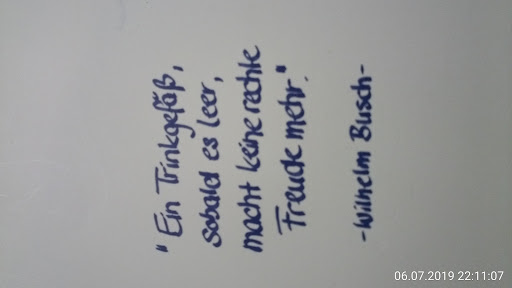 "Ein Trinkgefäß,
sobald es leer,
macht keine rechte
Freude mehr."
-Wilhelm Busch-
06.07.2019 22:11:07